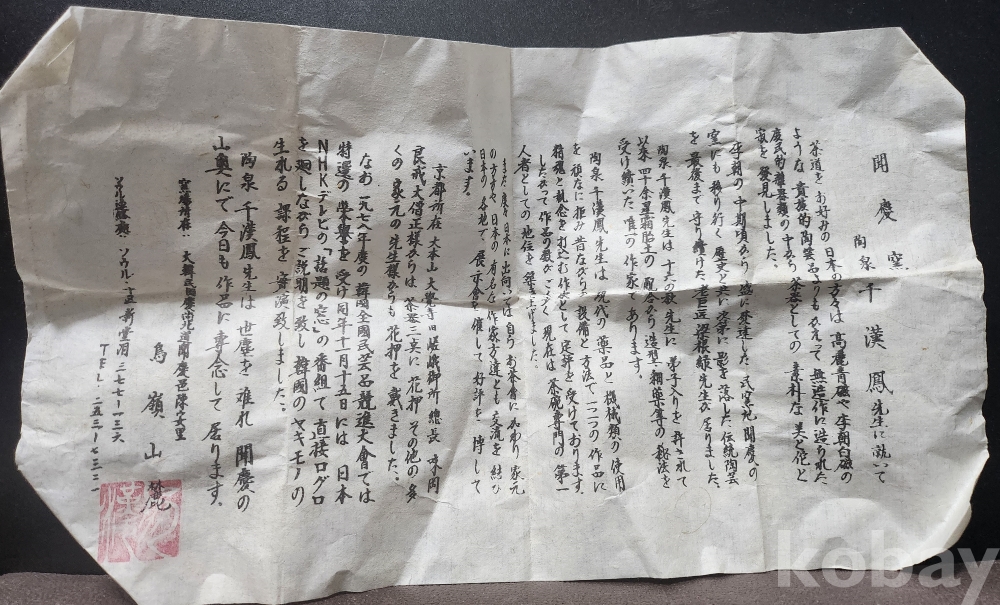 聞慶窯
陶泉千漢鳳先生に就いて
茶道をお好みの日本の方々は、高麗青磁や李朝白磁の
ような貴族的陶芸品よりもかえって無造作に造られた
庶民的雑器類の中から茶器としての素朴な美と侘と
寂を発見しました。
李朝の中期頃から盛に発達した民窯地聞慶の
窯にも移り行く歴史と共に次第に影を落した伝統陶芸
を最後まで守り続けた老巨匠
先生が居りました。
陶泉千漢鳳先生は十五の歳先生に弟子入りを許されて
以来四十余星霜胎土の配合から造型、釉薬等の秘法を
受け続いた唯一の作家であります。
陶泉千漢鳳先生は現代の薬品と機械類の使用
を頑なに拒み昔ながらの設備と方法で一つ一つの作品に
精魂と執念を打込む作家として定評を受けております。
したがって作品の数がすくなく現在は茶碗専門の第一
人者としての地位を築き上げました。
また度々日本に出向いては自らお茶会に加わり家元
の方々や、日本の有名な作家方達とも交流を結び
日本の各地で、展示会を催して好評を博して
います。
京都所在大本山大覚寺旧嵯峨御所総長味岡
良戒大僧正様からは茶器三矣に花押、その他の多
くの家元の先生様からも花押を戴きました。
なお一九七八年度の韓国全国民芸品競進大会では
特選の栄誉を受け同年十一月十五日には日本
NHKテレビの「話題の窓」の番組で直接ロクロ
を廻しながらご説明を致し韓国のヤキモノの
生れる課程を実演致しました。
陶泉千漢鳳先生は世塵を離れ聞慶の
山奥にて今日も作品に専念して居ります。
窯場住所・大韓民国慶尚北道聞慶邑陳安里
ソウル・中区新堂洞三七七ー一三六
TEL・二五三ー七三三一
鳥嶺山麓
kobay